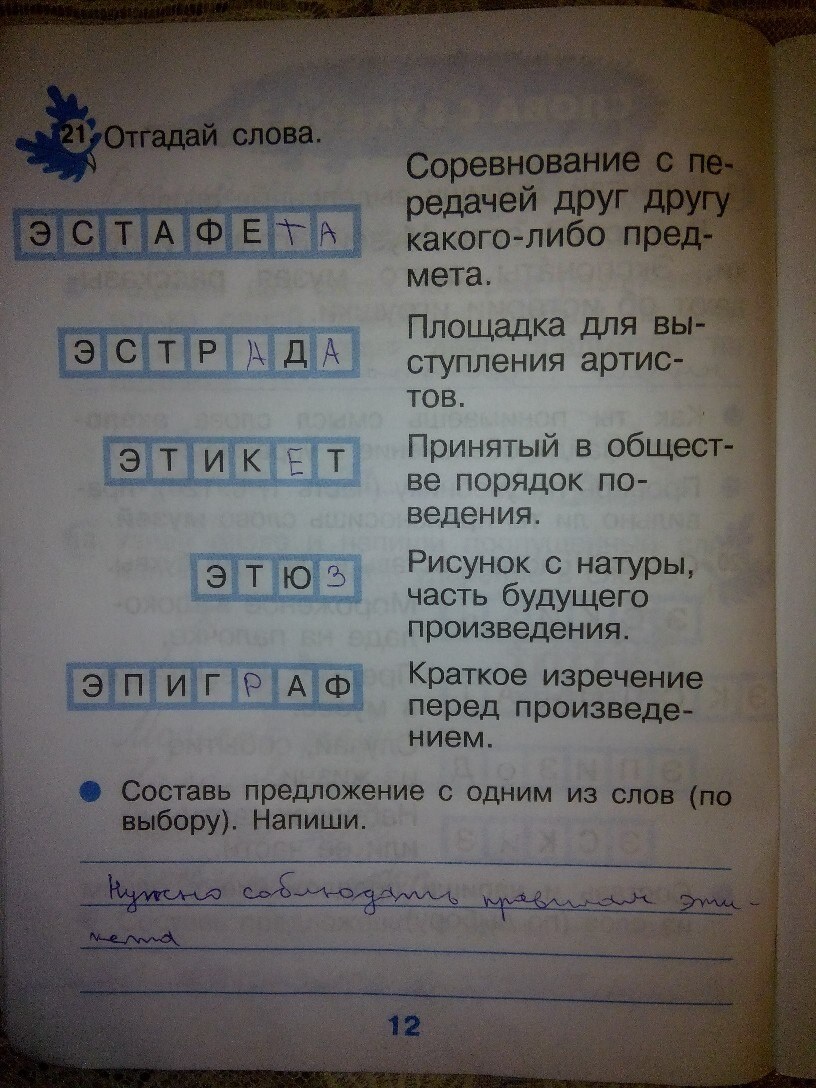 21. Отгадай слова.
ЭСТАФЕТА
Соревнование с пе-
редачей друг другу
какого-либо пред-
мета.
ЭСТРАДА
Площадка для вы-
ступления артис-
тов.
ЭТИКЕТ
Принятый в общест-
ве порядок по-
ведения.
ЭТЮЗ
Рисунок с натуры,
часть будущего
произведения.
ЭПИГРАФ
Краткое изречение
перед произведе-
нием.
Составь предложение с одним из слов (по
выбору). Напиши.
Нужно соблюдать правилам эти-
кета
12